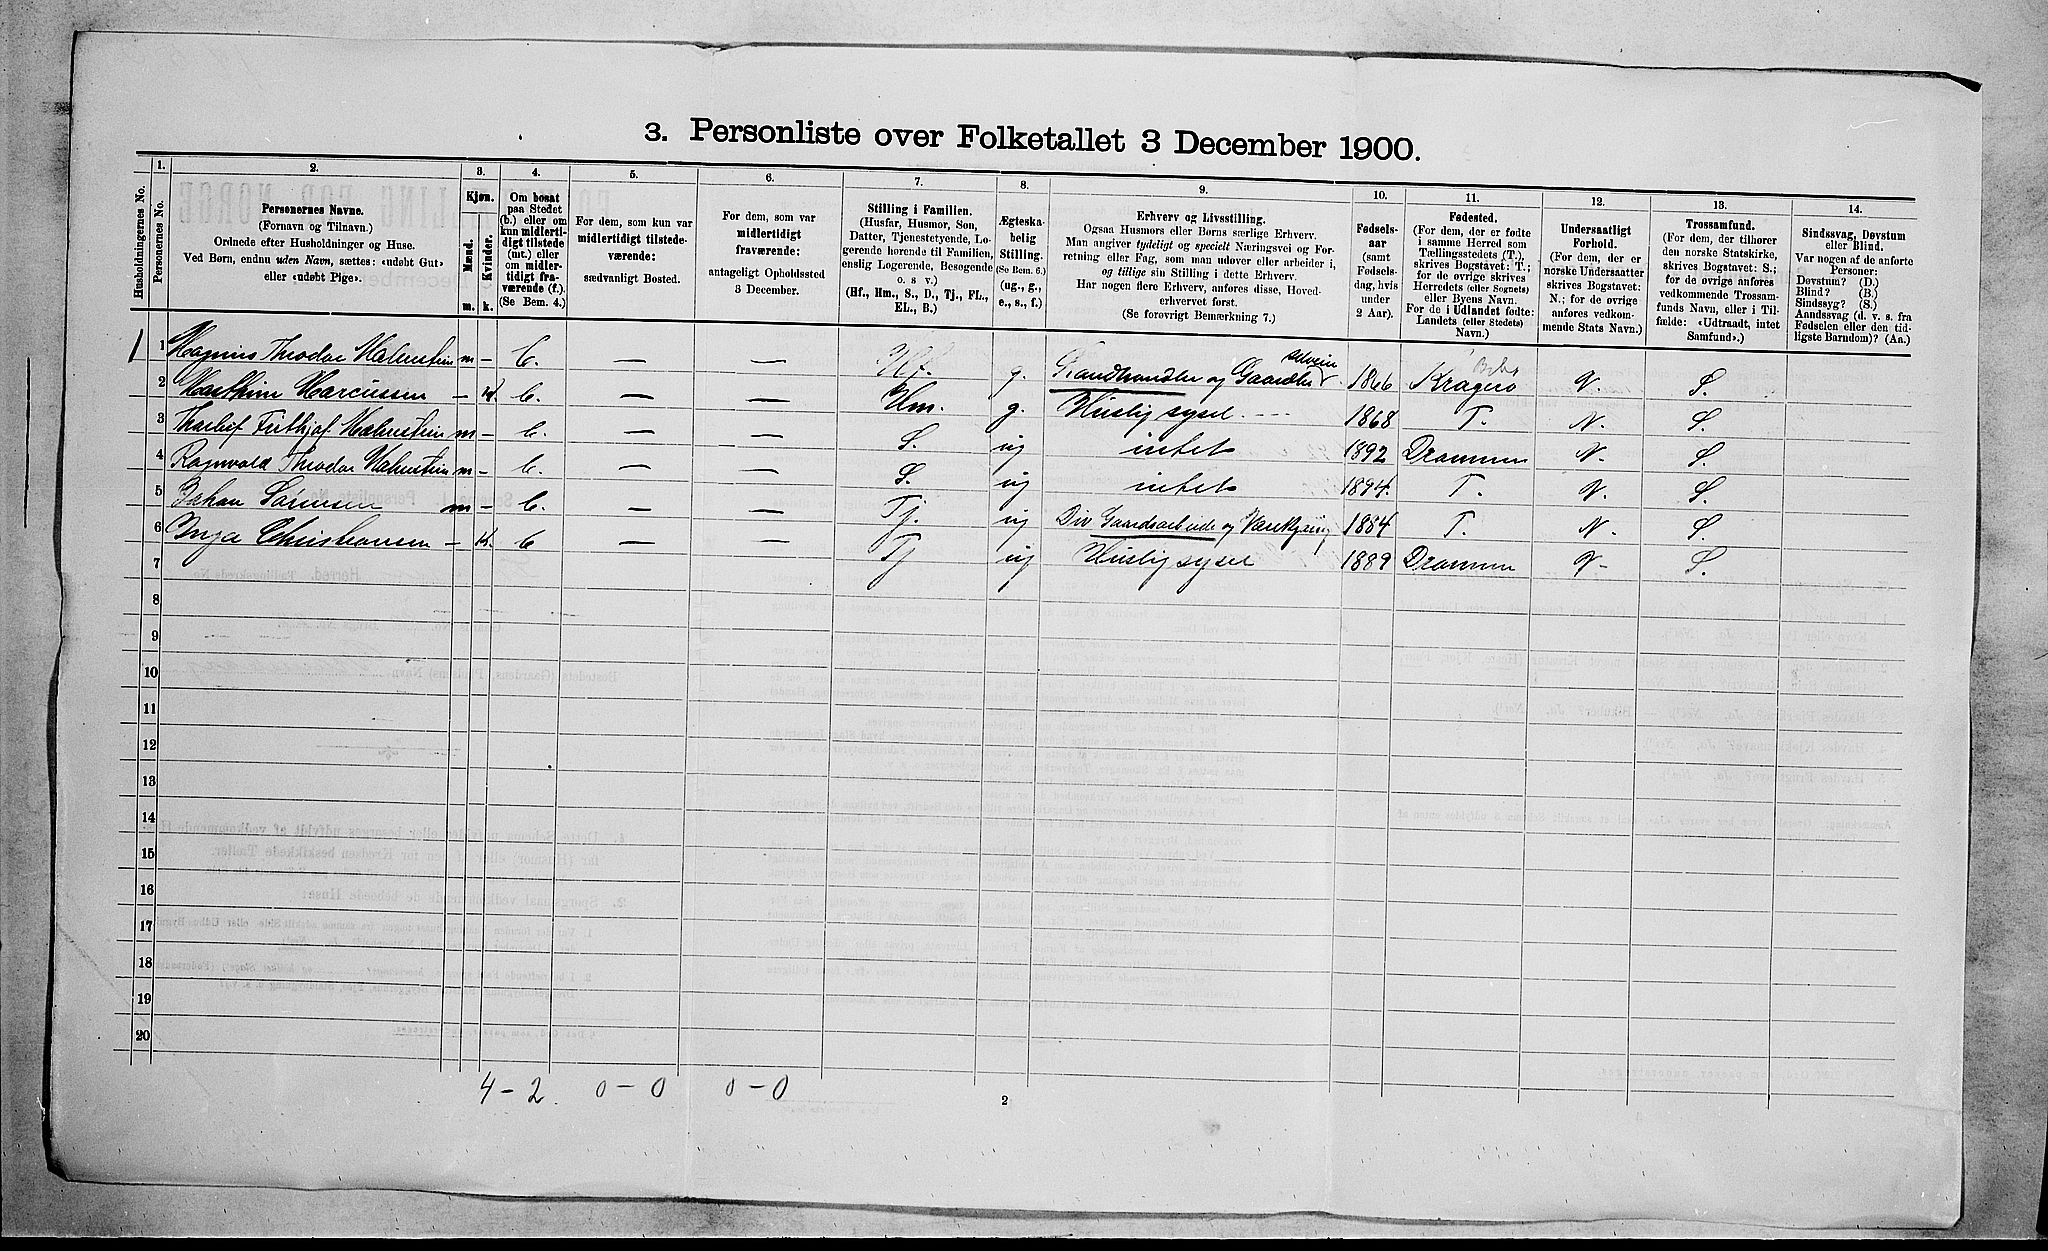 3. Personliste over Folketallet 3 December 1900.
1. 2. 3. 4. 5. 6. 7. 8. 9. 10. 11. 12. 13. 14.
Husholdningernes No.
Personernes No.
Personernes Navne.
(Fornavn og Tilnavn.)
Ordnede efter Husholdninger og Huse.
Ved Børn, endnu uden Navn, sættes: «udøbt Gut»
eller «udøbt Pige».
Kjøn.
Mænd. Kvinder.
m. k.
Om bosat
paa Stedet
(b.) eller om
kun midlerti-
digt tilstede
(mt.) eller
om midler-
tidigt fra-
værende (f.).
(Se Bem. 4.)
For dem, som kun var
midlertidigt tilstede-
værende:
sædvanligt Bosted.
For dem, som var
midlertidigt
fraværende:
antageligt Opholdssted
3 December.
Stilling i Familien.
(Husfar, Husmor, Søn,
Datter, Tjenestetyende, Lo-
gerende hørende til Familien,
enslig Logerende, Besøgende
o. s v.)
(Hf., Hm., S., D., Tj., FL.,
EL., B.)
Ægteska-
belig
Stilling.
(Se Bem. 6.)
(ug., g.,
e., s., f.)
Erhverv og Livsstilling.
Ogsaa Husmors eller Børns særlige Erhverv.
Man angiver tydeligt og specielt Næringsvei og For-
retning eller Fag, som man udøver eller arbeider i,
og tillige sin Stilling i dette Erhverv.
Har nogen flere Erhverv, anføres disse, Hoved-
erhvervet først.
(Se forøvrigt Bemærkning 7.)
Fødsels-
aar
(samt
Fødsels-
dag, hvis
under
2 Aar).
Fødested.
(For dem, der er fødte
i samme Herred som
Tællingsstedets (T.),
skrives Bogstavet: T.;
for de øvrige skrives
Herredets (eller Sognets)
eller Byens Navn.
For de i Udlandet fødte:
Landets (eller Stedets)
Navn.)
Undersaatligt
Forhold.
(For dem, der er
norske Undersaatter
skrives Bogstavet:
N.; for de øvrige
anføres vedkom-
mende Stats Navn.)
Trossamfund.
(For dem, der tilhører
den norske Statskirke,
skrives Bogstavet: S.;
for de øvrige anføres
vedkommende Trossam-
funds Navn, eller i Til-
fælde: «Udtraadt, intet
Samfund».)
Sindssvag, Døvstum
eller Blind.
Var nogen af de anførte
Personer:
Døvstum? (D.)
Blind? (B.)
Sindssyg? (S.)
Aandssvag (d. v. s. fra
Fødselen eller den tid-
ligste Barndom)? (Aa.)
1 1 Magnus Theodor Malmstein m – b. — — Hf. g. og Gaardbr selveier 1866 Kragerø By N. S.
2 Marthine Marcussen – k b. — — Hm. g. Huslig sysel. 1868 T. N. S.
3 Thorlef Frithjof Malmstein m – b. — — S. ug intet 1892 Drammen N. S.
4 Ragnvald Theodor Malmstein m – b. — — S. ug intet 1894. T. N. S.
5 Johan Sørensen m – b. — — Tj. ug Div Gaardsarbeide og Vedkjøring 1884 T. N. S.
6 Inga Christiansen – k. b — — Tj ug Huslig sysel 1889 Drammen N. S.
7
8
9
10
11
12
13
14
15
16
17
18
19
20
4 – 2 0 – 0 0 – 0
2